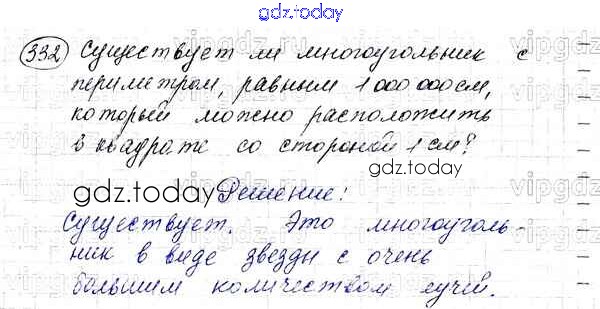 gdz.today
332 Существует ли многоугольник с
периметром, равным 1 000 000 см,
который можно расположить
в квадрате со стороной 1 см?
gdz.today
Решение:
Существует. Это многоуголь-
ник в виде звезды с очень
большим количеством лучей.